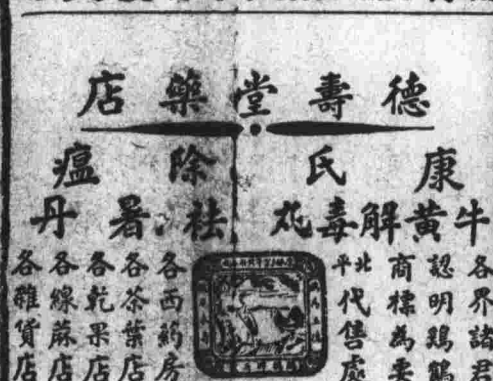 德壽堂藥店
康氏
牛黃解毒丸
除瘟
祛暑丹
各界諸君
認明鷄鶴
商標為要
北平代售處
各西葯房
各茶葉店
各乾果店
各線蔴店
各雜貨店